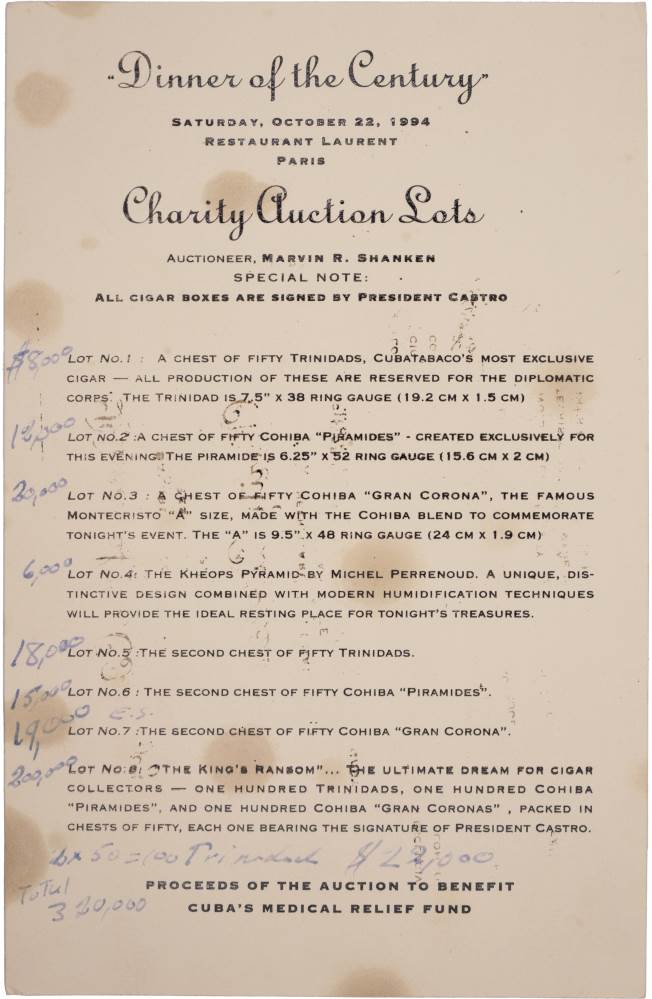 "Dinner of the Century"
SATURDAY, OCTOBER 22, 1994
RESTAURANT LAURENT
PARIS
Charity Auction Lots
AUCTIONEER, MARVIN R. SHANKEN
SPECIAL NOTE:
ALL CIGAR BOXES ARE SIGNED BY PRESIDENT CASTRO
$8,000 LOT NO.1 : A CHEST OF FIFTY TRINIDADS, CUBATABACO'S MOST EXCLUSIVE
CIGAR — ALL PRODUCTION OF THESE ARE RESERVED FOR THE DIPLOMATIC
CORPS. THE TRINIDAD IS 7.5" X 38 RING GAUGE (19.2 CM X 1.5 CM)
LOT NO.2 :A CHEST OF FIFTY COHIBA "PIRAMIDES" - CREATED EXCLUSIVELY FOR
THIS EVENING. THE PIRAMIDE IS 6.25" X 52 RING GAUGE (15.6 CM X 2 CM)
20,000 LOT NO.3 : A CHEST OF FIFTY COHIBA "GRAN CORONA", THE FAMOUS
MONTECRISTO "A" SIZE, MADE WITH THE COHIBA BLEND TO COMMEMORATE
TONIGHT'S EVENT. THE "A" IS 9.5" X 48 RING GAUGE (24 CM X 1.9 CM)
6,000 LOT NO.4: THE KHEOPS PYRAMID BY MICHEL PERRENOUD. A UNIQUE, DIS-
TINCTIVE DESIGN COMBINED WITH MODERN HUMIDIFICATION TECHNIQUES
WILL PROVIDE THE IDEAL RESTING PLACE FOR TONIGHT'S TREASURES.
18,000 LOT NO.5 :THE SECOND CHEST OF FIFTY TRINIDADS.
15,000 LOT NO.6 : THE SECOND CHEST OF FIFTY COHIBA "PIRAMIDES".
19,000 E.S.
LOT NO.7 :THE SECOND CHEST OF FIFTY COHIBA "GRAN CORONA".
200,000 LOT NO.8: "THE KING'S RANSOM"... THE ULTIMATE DREAM FOR CIGAR
COLLECTORS — ONE HUNDRED TRINIDADS, ONE HUNDRED COHIBA
"PIRAMIDES", AND ONE HUNDRED COHIBA "GRAN CORONAS" , PACKED IN
CHESTS OF FIFTY, EACH ONE BEARING THE SIGNATURE OF PRESIDENT CASTRO.
x 50 = 100 Trinidad $ 22,000
PROCEEDS OF THE AUCTION TO BENEFIT
CUBA'S MEDICAL RELIEF FUND
Total
320,000